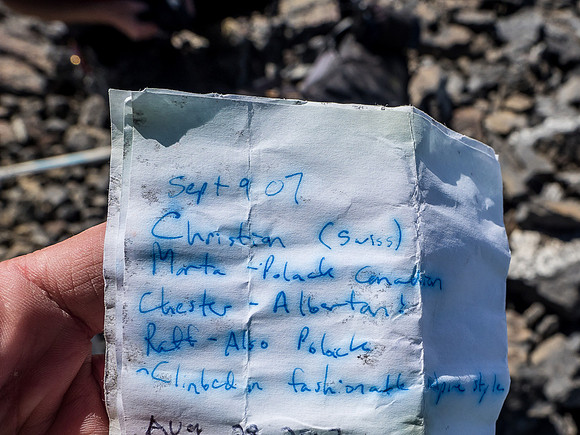 Sept 9 07
Christian (Swiss)
Marta - Polack Canadian
Chester - Albertan
Ralf - Also Polack
- Climbed in fashionable alpine style
Aug 28